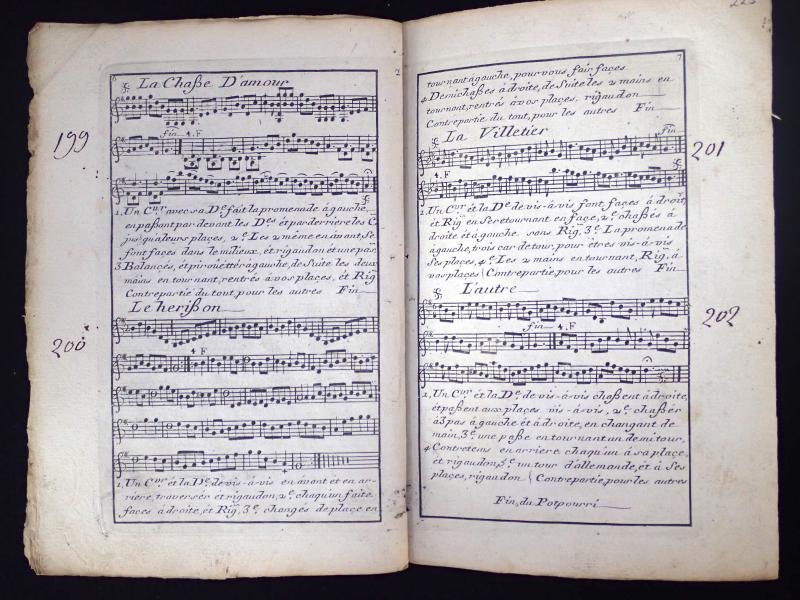 6
La Chaße D'amour
fin 4. F
199
1. Un Cer avec sa De fait la promenade à gauche,
en paßant par devant les Des et par derriere les C
jusqu'aleurs plaçes, 2e Les 2 même en avant, Se
font façes dans le milieux, et rigaudon et une pae,
3 Balançés, et piroüettér à gauche, de Suite les deux
mains en tournant, rentrés à vos plaçes, et Rig
Contrepartie du tout, pour les autres Fin
Le herißon
4 F
200
1. Un Cer et la De de vis-à-vis en avant et en ar-
riere, traversér et rigaudon, 2e chaqu'un faite
façes à droite, et Rig, 3e changes de plaçe en
2
7
223
tournant à gauche, pour vous fair façes
4 Demichaßes à droite, de Suite les 2 mains en
tournant, rentrés à vos plaçes, rigaudon
Contrepartie du tout, pour les autres Fin
La Villetiér
fin
201
4 F
1. Un Cer et la De de vis-à-vis font façes à droit,
et Rig en Se retournant en façe, 2e chaßés à
droite et à gauche sans Rig, 3e La promenade
à gauche, trois car de tour pour êtres vis-à-vis
Ses plaçes, 4e Les 2 mains en tournant, Rig, à
vos plaçes Contrepartie, pour les autres Fin
L'autre
202
fin 4. F
1. Un Cer et la De de vis-à-vis chaßent à droite,
et paßent aux plaçes vis-à-vis, 2e chaßér
à 3 pas à gauche et à droite, en changant de
main, 3e une paße en tournant un demi tour,
4 Contretems en arriere chaqu'un à sa plaçe,
et rigaudon, 5e un tour d'allemande, et à Ses
plaçes, rigaudon Contrepartie, pour les autres
Fin, du Potpourri